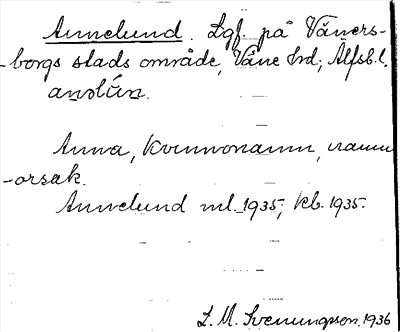 Annelund. Lgf. på Väners-
-borgs stads område, Väne hrd; Älfsb.l.
Anna, kvinnonamn, namn
-orsak.
Annelund ml. 1935; kb. 1935.
L. M. Svenungsson. 1936